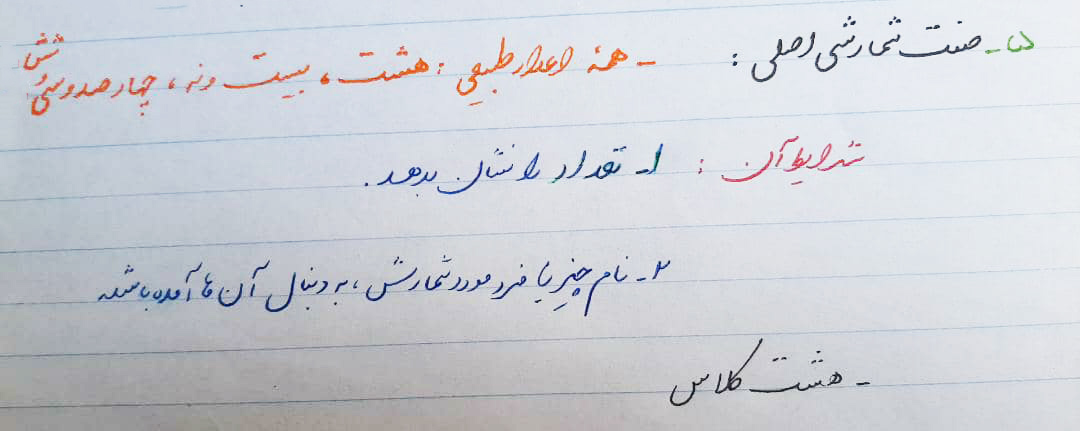 ۵- صفت شمارشی اصلی : - همهٔ اعداد طبیعی : هشت ، بیست و نه ، چهارصد و سی و شش
شرایط آن : ۱- تعداد را نشان بدهد .
۲- نام چیز یا فرد مورد شمارش ، به دنبال آن ها آمده باشد
- هشت کلاس